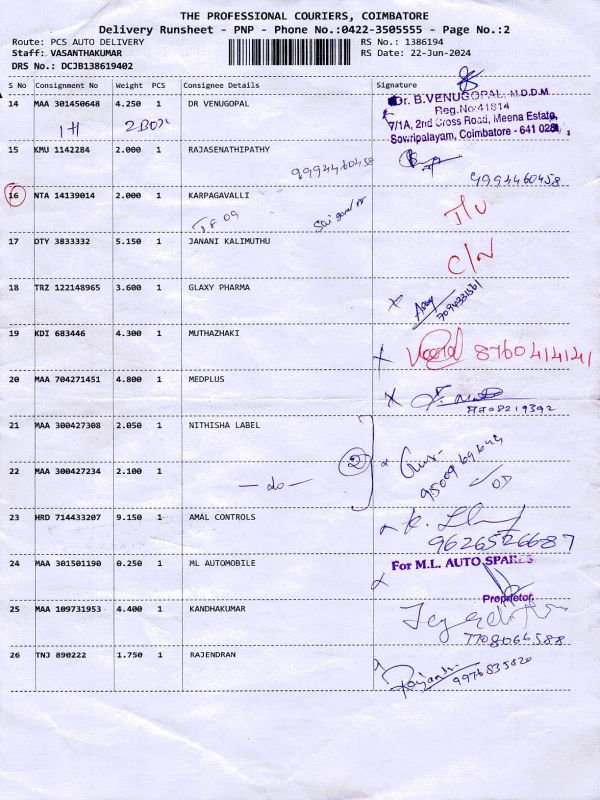 THE PROFESSIONAL COURIERS, COIMBATORE
Delivery Runsheet - PNP - Phone No.:0422-3505555 - Page No.:2
Route: PCS AUTO DELIVERY RS No.: 1386194
Staff: VASANTHAKUMAR RS Date: 22-Jun-2024
DRS No.: DCJB138619402
S No Consignment No Weight PCS Consignee Details Signature
14 MAA 301450648 4.250 1 DR VENUGOPAL
1H 2BOX
Dr. B.VENUGOPAL, M.D.D.M
Reg.No:41814
7/1A, 2nd Cross Road, Meena Estate,
Sowripalayam, Coimbatore - 641 028
15 KMU 1142284 2.000 1 RAJASENATHIPATHY
9994460458 9994460458
16 NTA 14139014 2.000 1 KARPAGAVALLI
17 DTY 3833332 5.150 1 JANANI KALIMUTHU
C/N
18 TRZ 122148965 3.600 1 GLAXY PHARMA
19 KDI 683446 4.300 1 MUTHAZHAKI
8760414141
20 MAA 704271451 4.800 1 MEDPLUS
21 MAA 300427308 2.050 1 NITHISHA LABEL
2
22 MAA 300427234 2.100 1
— do —
23 HRD 714433207 9.150 1 AMAL CONTROLS
9626526687
24 MAA 301501190 0.250 1 ML AUTOMOBILE
For M.L. AUTO SPARES
Proprietor.
25 MAA 109731953 4.400 1 KANDHAKUMAR
7708064588
26 TNJ 890222 1.750 1 RAJENDRAN
9976835020